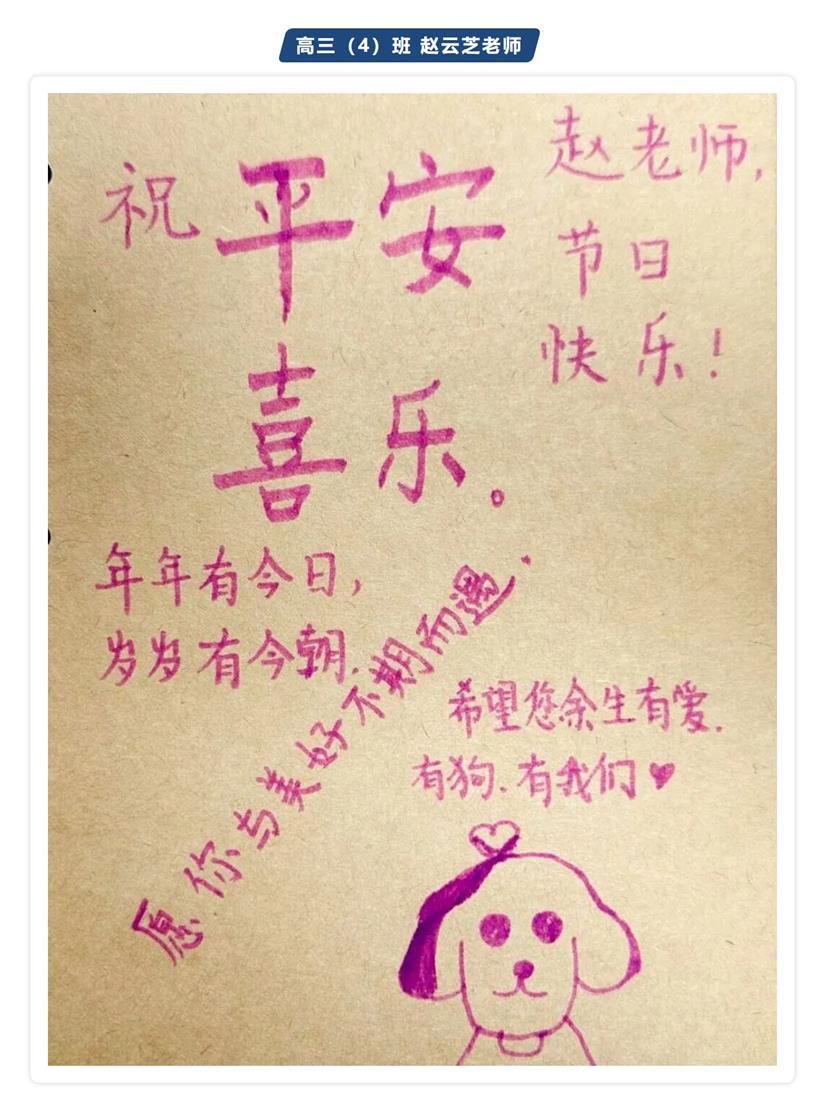 高三（4）班 赵云芝老师
赵老师,
节日
快乐!
祝平安
喜乐。
年年有今日,
岁岁有今朝.
愿你与美好不期而遇.
希望您余生有爱.
有狗.有我们♥